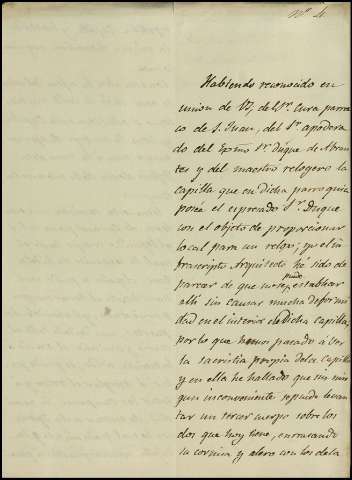 Nº 4.
Habiendo reconocido en
union de VS, del Sr. Cura parro
co de S. Juan, del Sr. apodera
do del Exmo Sr. Duque de Abran
tes y del maestro relogero la
capilla que en dicha parroquia
posée el expresado Sr. Duque
con el objeto de proporcionar
local para un relox; yo el in
frascripto Arquitecto hé sido de
parecer de que no se puede establear
alli sin causar mucha deformi
dad en el interior de Dicha capilla;
por lo que hemos pasado à ver
la sacristia propia de la capilla
y en ella he hallado que sin nin
gun inconveniente se puede levan
tar un tercer cuerpo sobre los
dos que hoy tiene, enrasando
su cornisa y alero con los de la